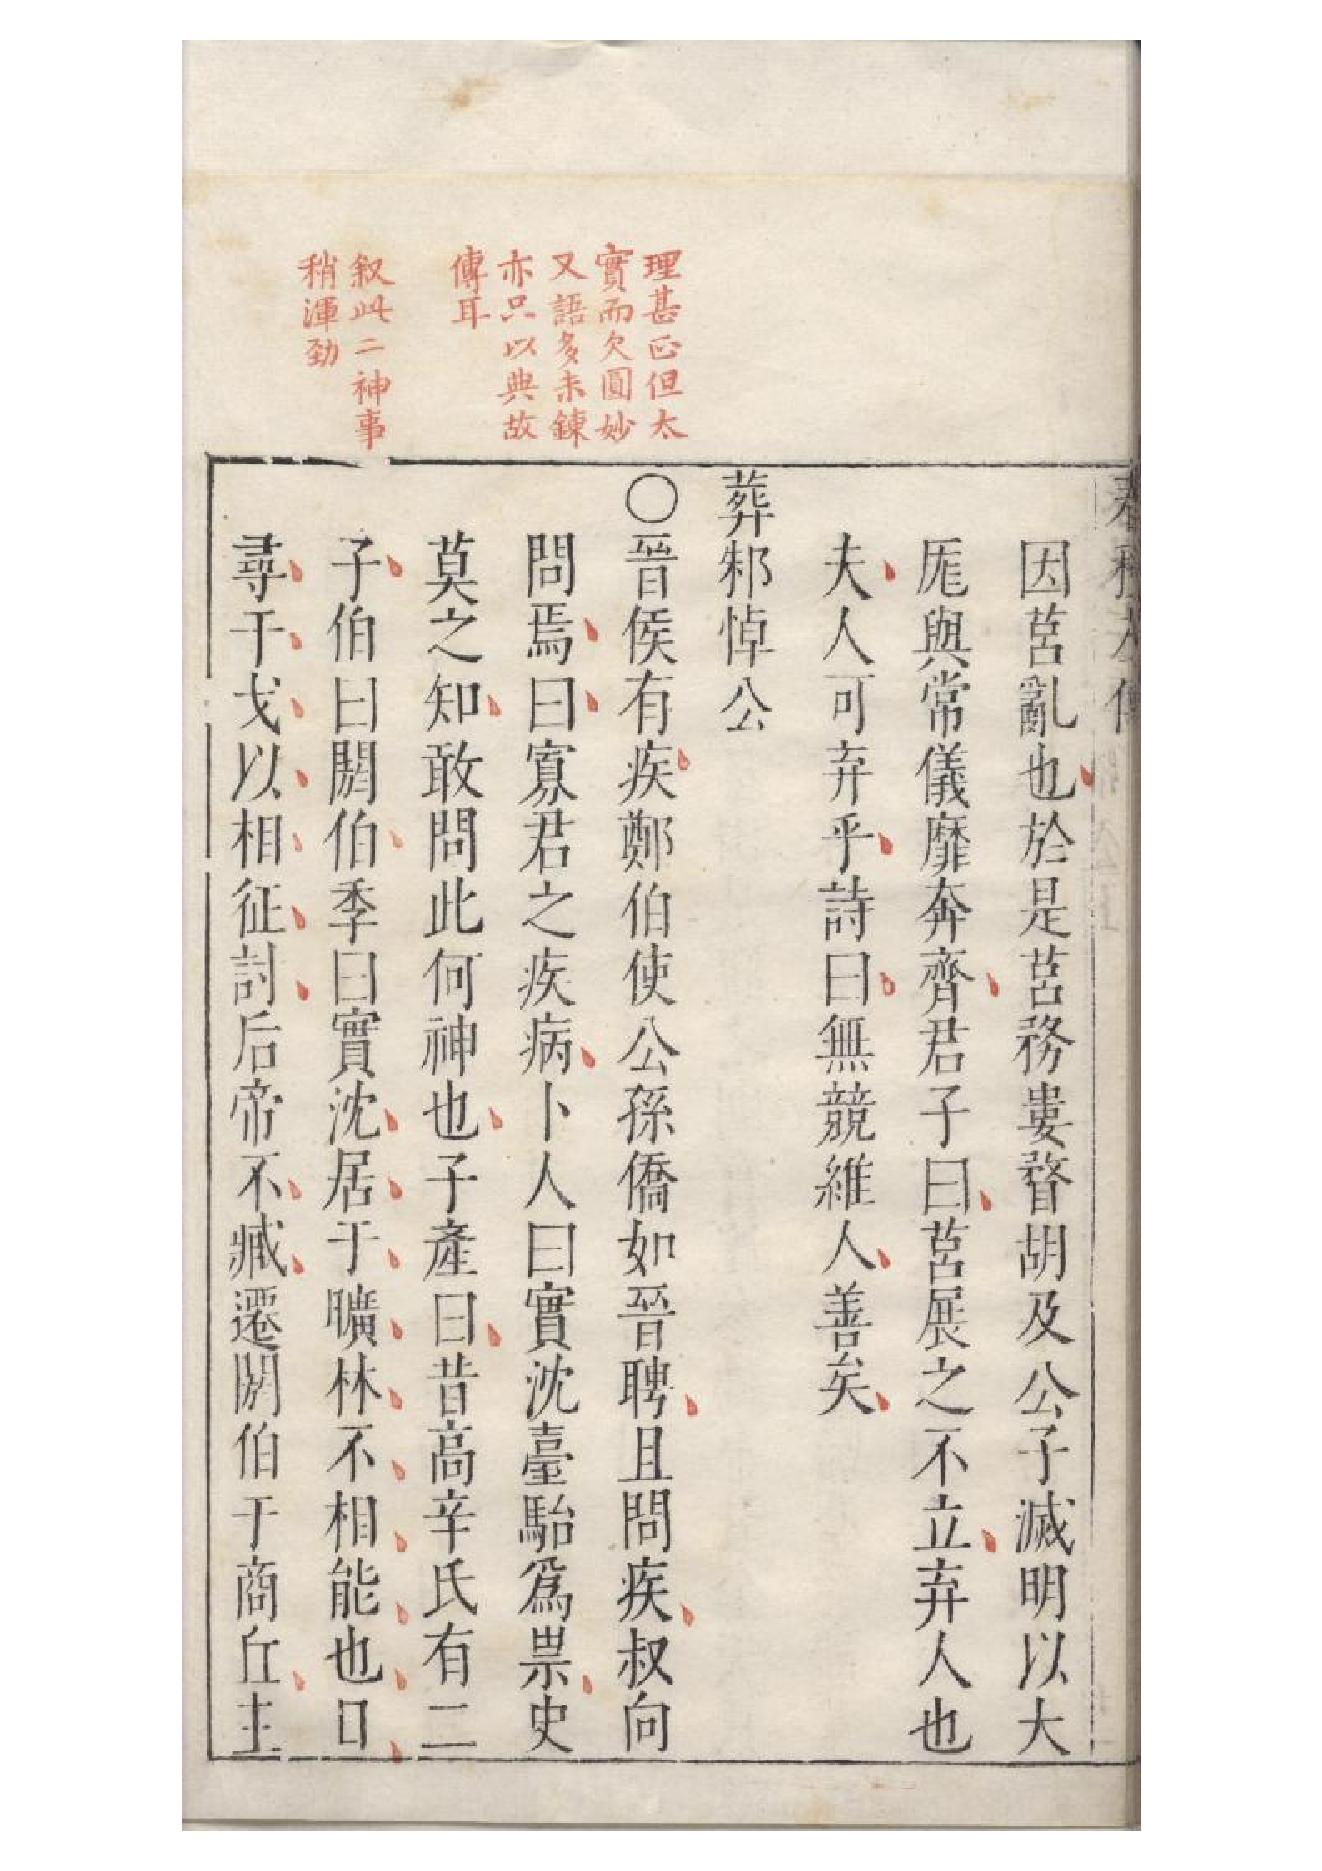 理甚正但太
實而欠圓妙
又語多未鍊
亦只以典故
傳耳
叙此二神事
稍渾勁
因莒亂也於是莒務婁瞀胡及公子滅明以大
厖與常儀靡奔齊君子曰莒展之不立弃人也
夫人可弃乎詩曰無競維人善矣
葬邾悼公
〇晉侯有疾鄭伯使公孫僑如晉聘且問疾叔向
問焉曰寡君之疾病卜人曰實沈臺駘爲祟史
莫之知敢問此何神也子產曰昔高辛氏有二
子伯曰閼伯季曰實沈居于曠林不相能也日
尋干戈以相征討后帝不臧遷閼伯于商丘主